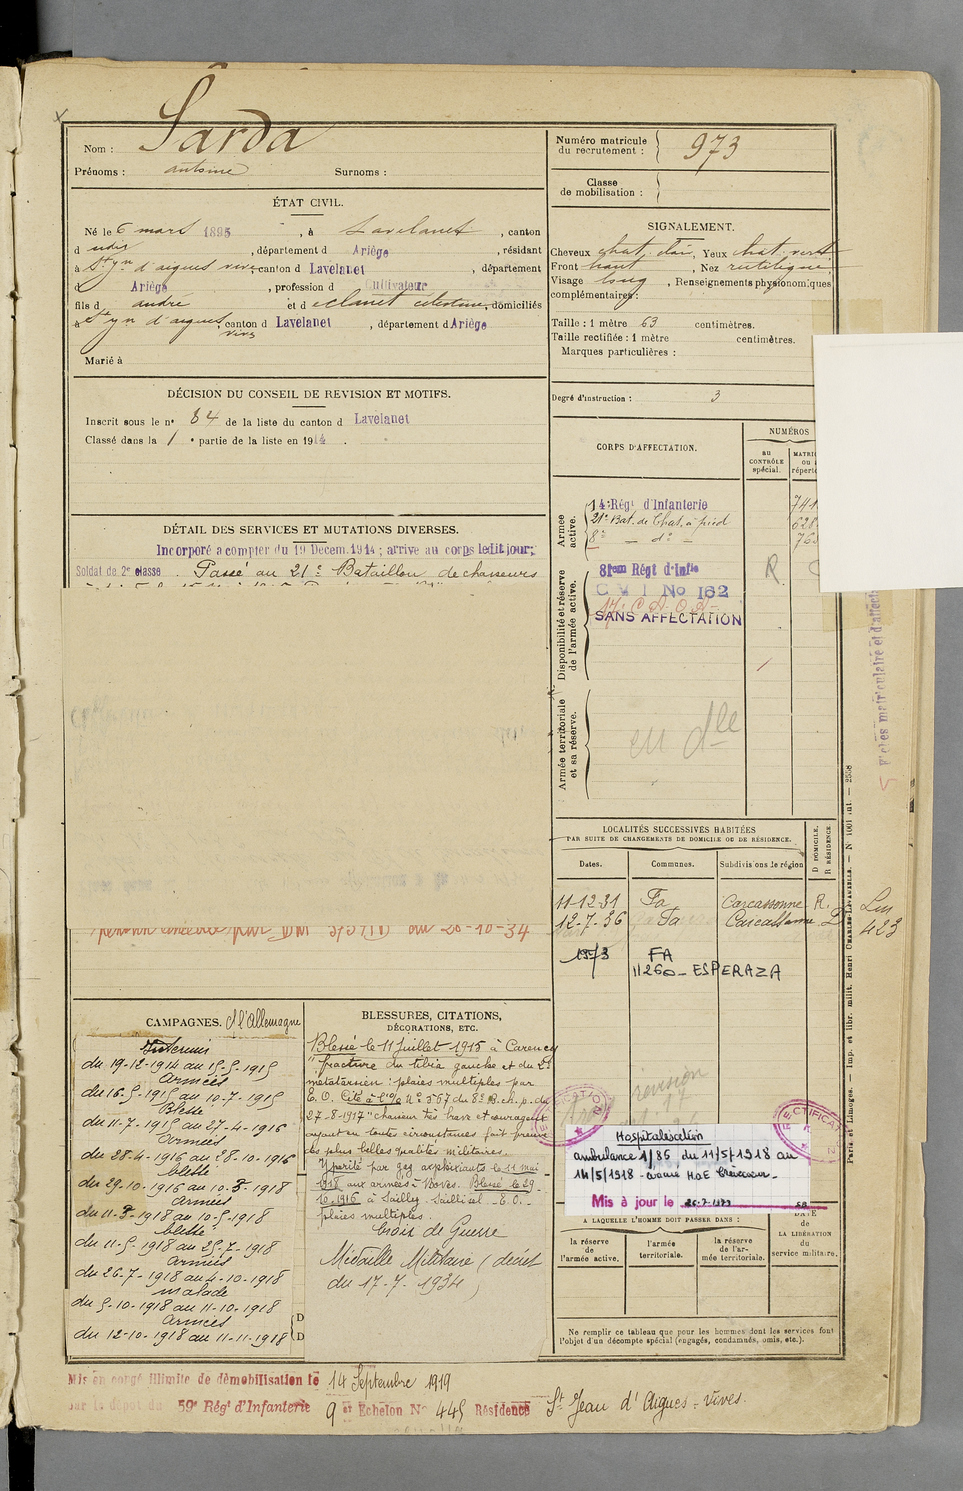 Nom : Sarda
Prénoms : antoine Surnoms :
Numéro matricule du recrutement : 973
Classe de mobilisation :
ÉTAT CIVIL.
Né le 6 mars 1895, à Lavelanet, canton
d udit, département d Ariège, résidant
à St Jn d'aigues vives canton d Lavelanet, département
d Ariège, profession d Cultivateur
fils d andré et d eclanet célestine, domiciliés
à St Jn d'aigues vives, canton d Lavelanet, département d Ariège
Marié à
SIGNALEMENT.
Cheveux chat. clair, Yeux chat. vert
Front haut, Nez rectiligne
Visage long, Renseignements physionomiques
complémentaires :
Taille : 1 mètre 63 centimètres.
Taille rectifiée : 1 mètre centimètres.
Marques particulières :
Degré d'instruction : 3
DÉCISION DU CONSEIL DE REVISION ET MOTIFS.
Inscrit sous le n° 84 de la liste du canton d Lavelanet
Classé dans la 1e partie de la liste en 1914.
DÉTAIL DES SERVICES ET MUTATIONS DIVERSES.
Incorporé a compter du 19 Decem. 1914; arrive au corps ledit jour;
Soldat de 2e classe. Passé au 21e Bataillon de chasseurs
CORPS D'AFFECTATION.
NUMÉROS
au CONTRÔLE spécial.
Armée active.
14e Régt d'Infanterie
21e Bat. de Chas. à pied
8e — do —
Disponibilité et réserve de l'armée active.
81em Régt d'Infie
C M I No 162
SANS AFFECTATION
R.
Armée territoriale et sa réserve.
en dle
LOCALITÉS SUCCESSIVES HABITÉES
PAR SUITE DE CHANGEMENTS DE DOMICILE OU DE RÉSIDENCE.
Dates. Communes. Subdivisions de région D DOMICILE. R RÉSIDENCE
11-12-31 Fa Carcassonne R.
12-7-36 Fa Carcassonne D
1973 FA
11260 - ESPERAZA
423
au 20-10-34
CAMPAGNES. c/ l'Allemagne
Interieur
du 19-12-1914 au 15-5-1915
Armées
du 16-5-1915 au 10-7-1915
Blessé
du 11-7-1915 au 27-4-1916
Armées
du 28-4-1916 au 28-10-1916
blessé
du 29-10-1916 au 10-3-1918
armées
du 11-3-1918 au 10-5-1918
blessé
du 11-5-1918 au 25-7-1918
armées
du 26-7-1918 au 4-10-1918
malade
du 5-10-1918 au 11-10-1918
armées
du 12-10-1918 au 11-11-1918
BLESSURES, CITATIONS,
DÉCORATIONS, ETC.
Blessé le 11 Juillet 1915 à Carency
"fracture du tibia gauche et du 2e
metatarsien : plaies multiples par
E. O. Cité à l'o/o n° 367 du 8e B. ch. p. du
27-8-1917 "chasseur très brave et courageux
ayant en toutes circonstances fait preuve
des plus belles qualités militaires.
Yperité par gaz asphixiants le 11 mai
1918 aux armées à Boves. Blessé le 29-
10-1916 à Sailly-Saillisel - E. O. -
plaies multiples.
Croix de Guerre
Médaille Militaire (décret
du 17-7-1934)
révision
RECTIFICATION
Hospitalisation
ambulance 1/85 du 11/5/1918 au
14/5/1918
Mis à jour le
A LAQUELLE L'HOMME DOIT PASSER DANS :
la réserve de l'armée active.
l'armée territoriale.
la réserve de l'armée territoriale.
DATE de LA LIBÉRATION du service militaire.
Ne remplir ce tableau que pour les hommes dont les services font
l'objet d'un décompte spécial (engagés, condamnés, omis, etc.).
Mis en congé illimité de démobilisation le 14 Septembre 1919
par le dépôt du 59e Régt d'Infanterie 9 e Echelon N° 445 Résidence St Jean d'Aigues-Vives.
Paris et Limoges. — Imp. et libr. milit. Henri CHARLES-LAVAUZELLE.